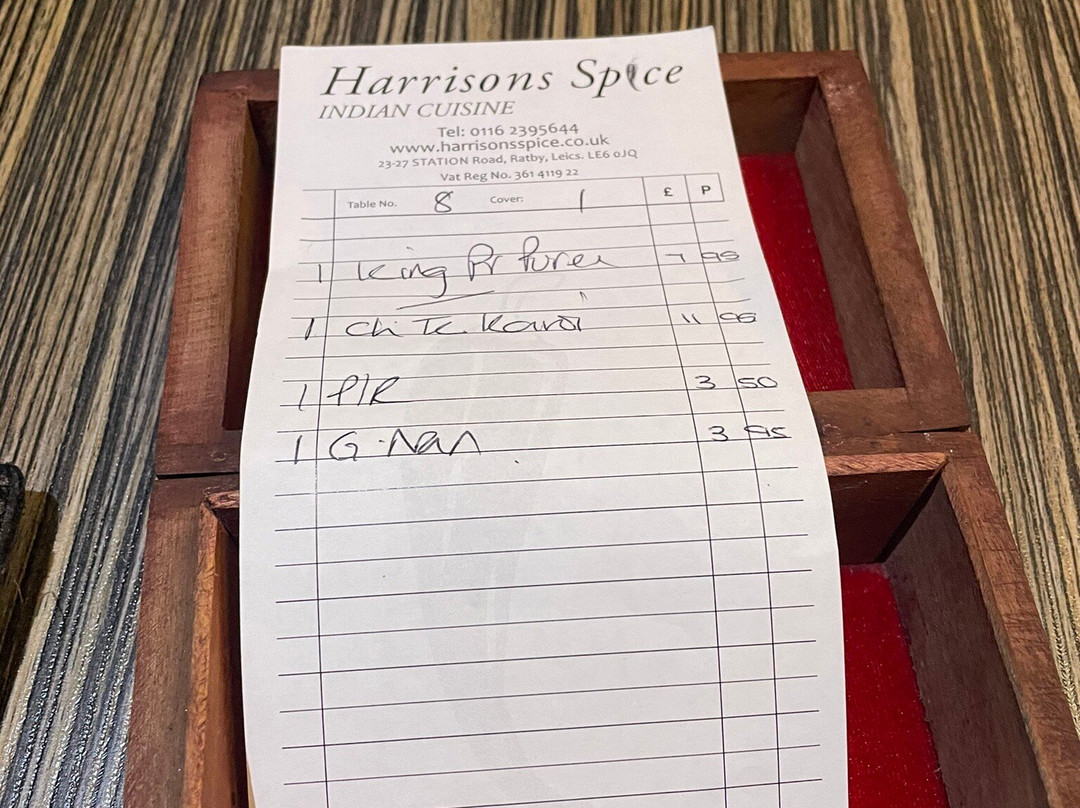 Harrisons Spice
INDIAN CUISINE
Tel: 0116 2395644
www.harrisonsspice.co.uk
23-27 STATION Road, Ratby, Leics. LE6 0JQ
Vat Reg No. 361 4119 22
Table No. 8 Cover: 1 £ P
1 King Pr Puree 7 95
1 Ch Tk Karai 11 95
1 P/R 3 50
1 G. Nan 3 95